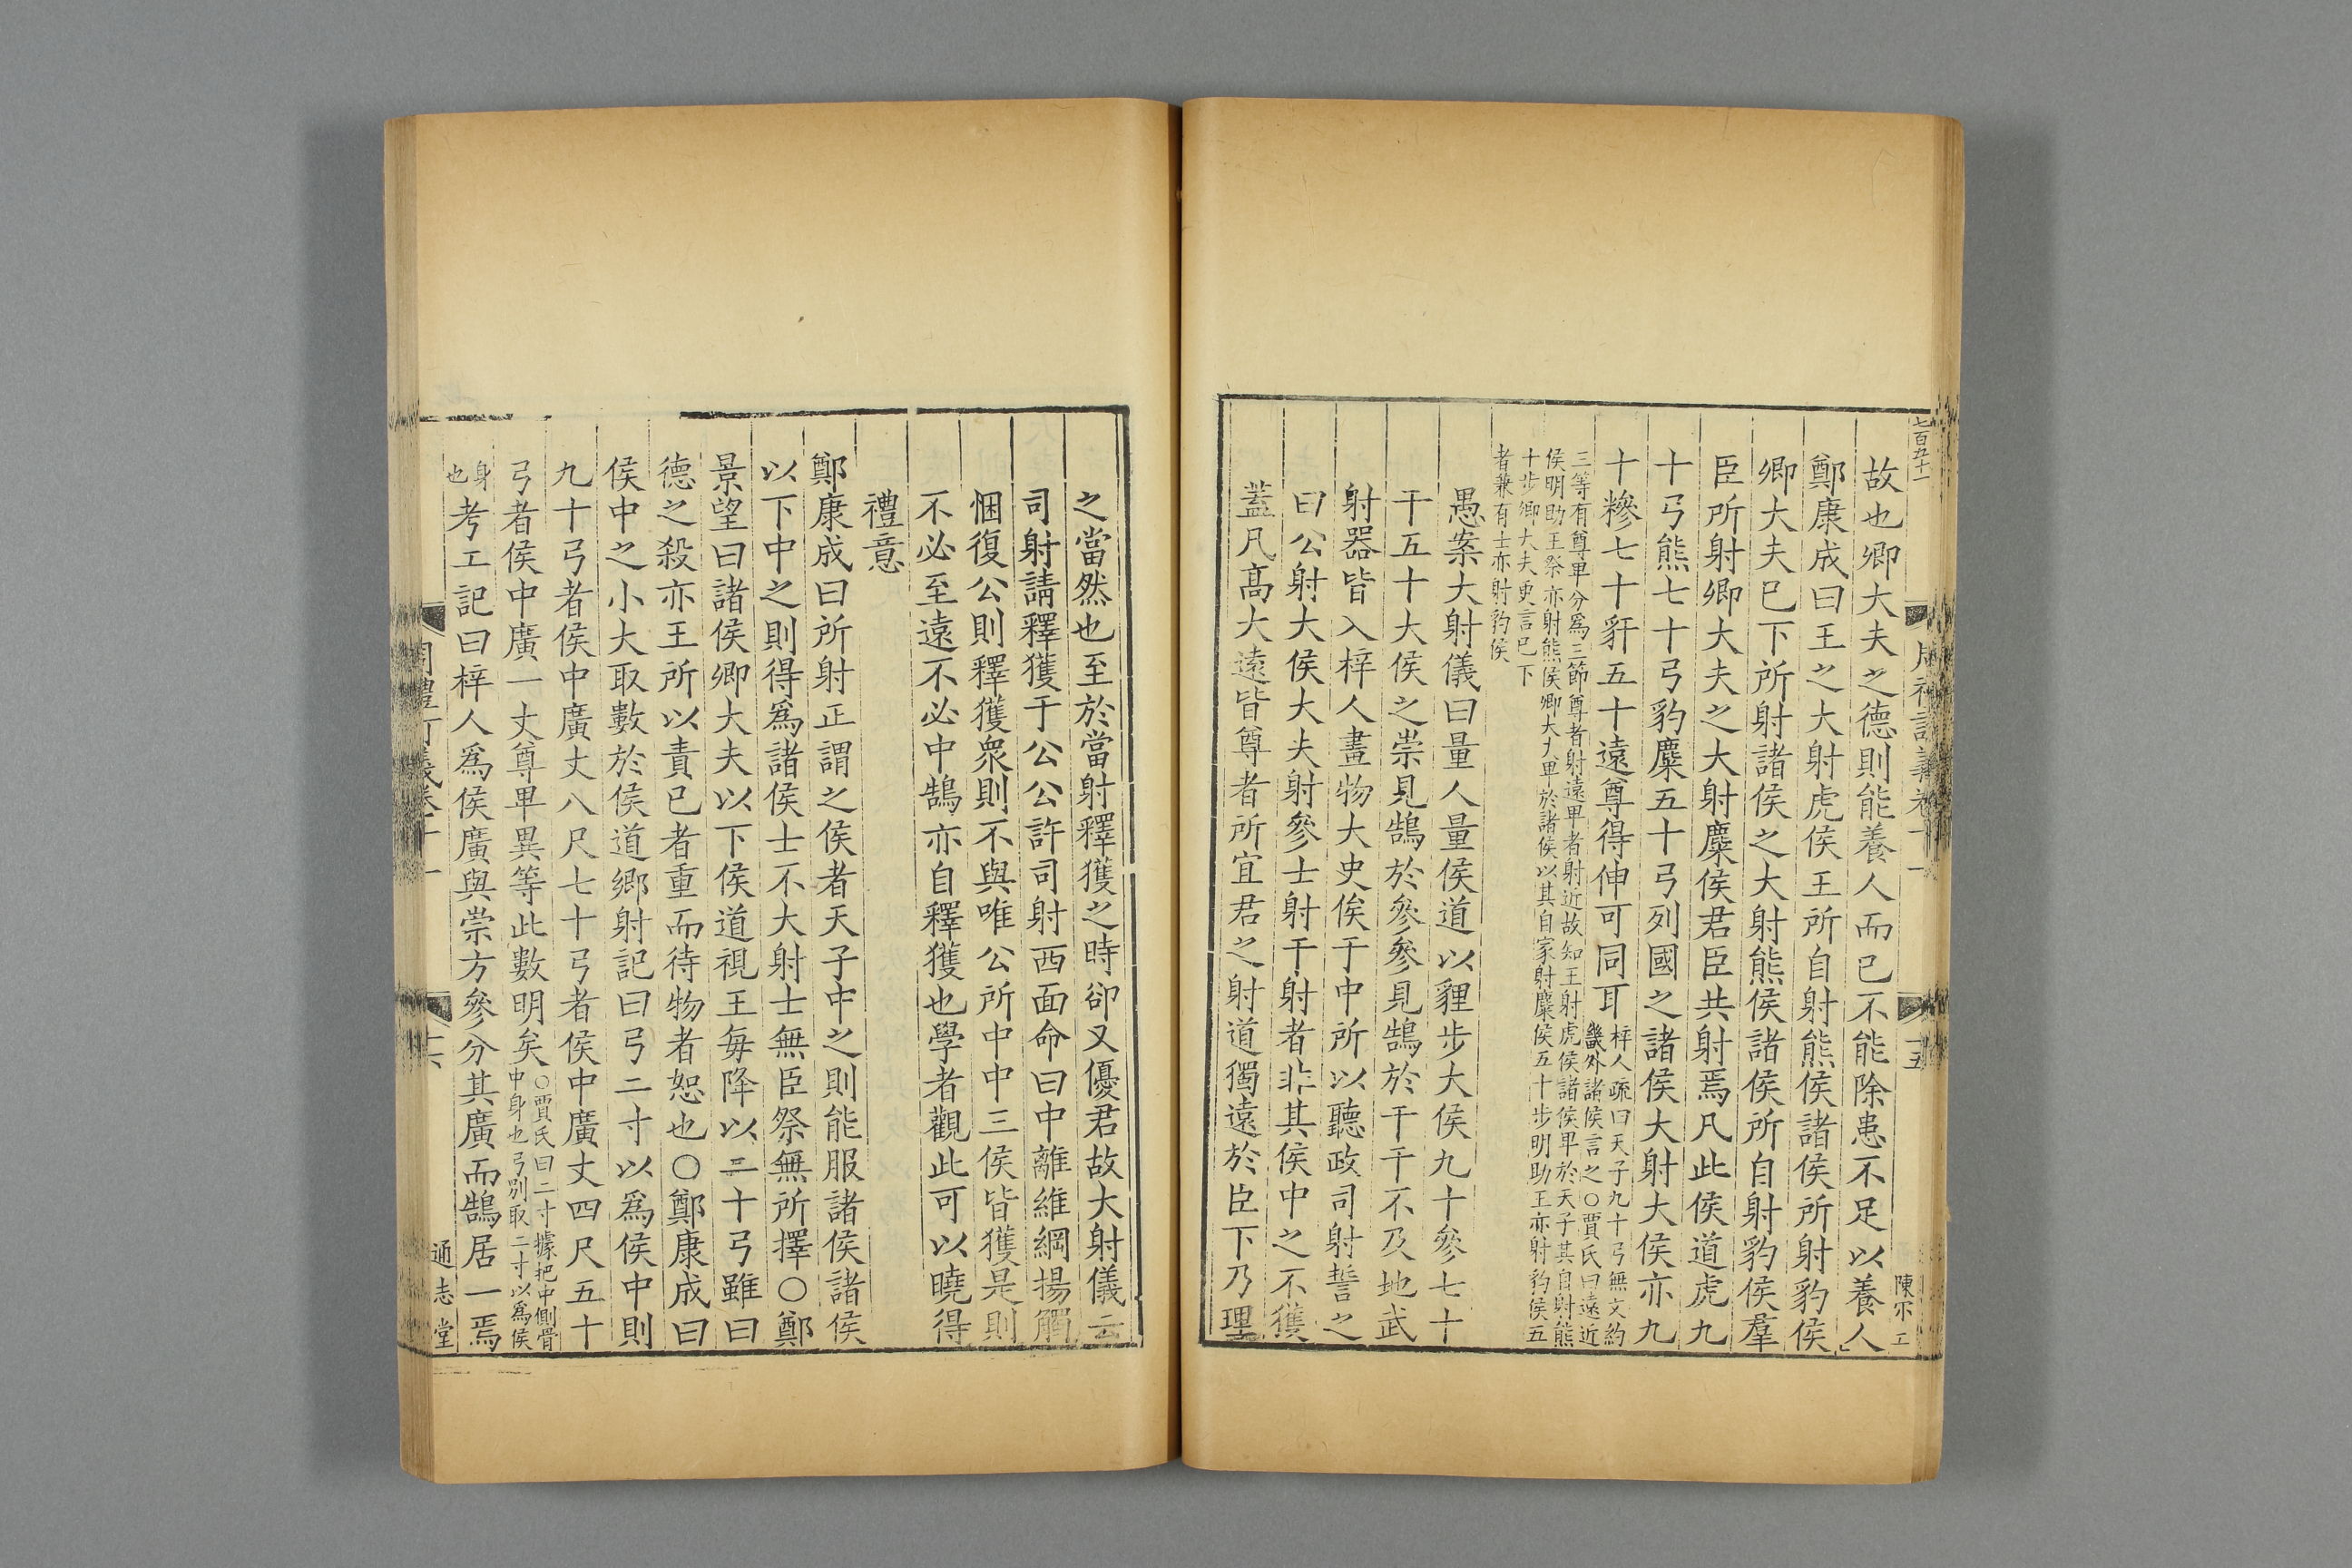 七百五十一
故也卿大夫之德則能養人而已不能除患不足以養人
鄭康成曰王之大射虎侯王所自射熊侯諸侯所射豹侯
卿大夫已下所射諸侯之大射熊侯諸侯所自射豹侯羣
臣所射卿大夫之大射麋侯君臣共射焉凡此侯道虎九
十弓熊七十弓豹麋五十弓列國之諸侯大射大侯亦九
十糝七十豻五十遠尊得伸可同耳
梓人疏曰天子九十弓無文約
畿外諸侯言之○賈氏曰遠近
三等有尊卑分爲三節尊者射遠卑者射近故知王射虎侯諸侯卑於天子其自射熊
侯明助王祭亦射熊侯卿大夫卑於諸侯以其自家射麋侯五十步明助王亦射豹侯五
十步卿大夫更言已下
者兼有士亦射豹侯
愚案大射儀曰量人量侯道以貍步大侯九十參七十
干五十大侯之崇見鵠於參參見鵠於干干不及地武
射器皆入梓人畫物大史俟于中所以聽政司射誓之
曰公射大侯大夫射參士射干射者非其侯中之不獲
蓋凡高大遠皆尊者所宜君之射道獨遠於臣下乃理
之當然也至於當射釋獲之時卻又優君故大射儀云
司射請釋獲于公公許司射西面命曰中離維綱揚觸
梱復公則釋獲衆則不與唯公所中中三侯皆獲是則
不必至遠不必中鵠亦自釋獲也學者觀此可以曉得
禮意
鄭康成曰所射正謂之侯者天子中之則能服諸侯諸侯
以下中之則得爲諸侯士不大射士無臣祭無所擇○鄭
景望曰諸侯卿大夫以下侯道視王每降以二十弓雖曰
德之殺亦王所以責已者重而待物者恕也○鄭康成曰
侯中之小大取數於侯道鄉射記曰弓二寸以爲侯中則
九十弓者侯中廣丈八尺七十弓者侯中廣丈四尺五十
弓者侯中廣一丈尊卑異等此數明矣
○賈氏曰二寸據把中側骨
中身也弓別取二寸以爲侯
身
也
考工記曰梓人爲侯廣與崇方參分其廣而鵠居一焉
通志堂